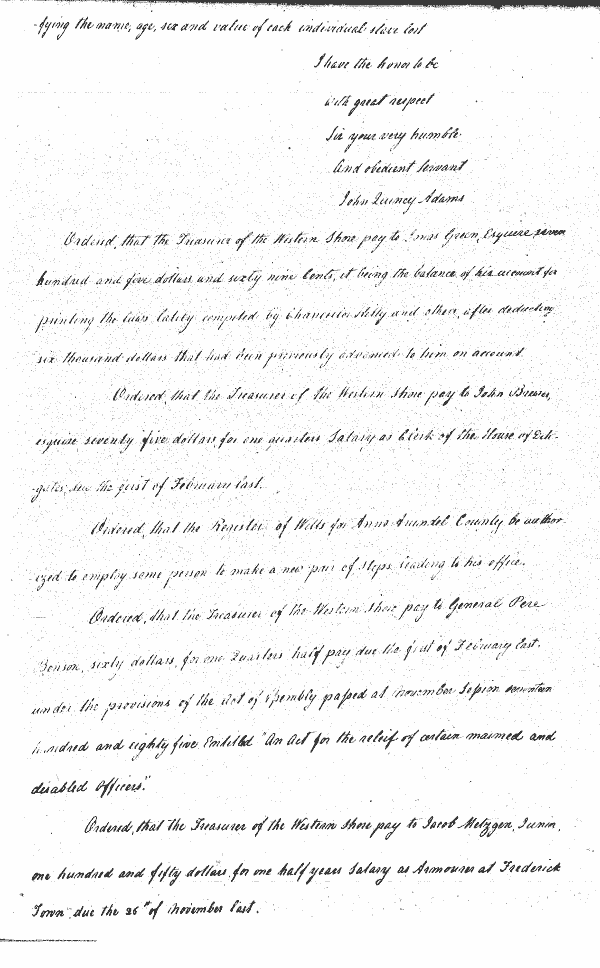 -fying the name, age, sex and value of each individual slave lost
I have the honor to be
with great respect
Sir your very humble
And obedient Servant
John Quincy Adams
Ordered, that the Treasurer of the Western Shore pay to Jonas Green, Esquire seven
hundred and five dollars and sixty nine Cents, it being the balance of his account for
printing the laws lately compiled by Chancellor Kilty and others, after deducting
six thousand dollars that had been previously advanced to him on account.
Ordered, that the Treasurer of the Western Shore pay to John Brewer,
esquire seventy five dollars, for one quarters Salary as Clerk of the House of Dele-
-gates, due the first of February last.
Ordered, that the Register of Wills for Anne Arundel County be author
ized to employ some person to make a new pair of steps leading to his office.
Ordered, that the Treasurer of the Western Shore pay to General Pere
Benson, sixty dollars, for one Quarters half pay due the first of February last.
under the provisions of the Act of Assembly passed at November Session seventeen
hundred and eighty five Entitled "An Act for the releif of certain maimed and
disabled Officers".
Ordered, that the Treasurer of the Western Shore pay to Jacob Metzgen, Junir.
one hundred and fifty dollars, for one half years Salary as Armourer at Frederick
Town, due the 26th of November last.